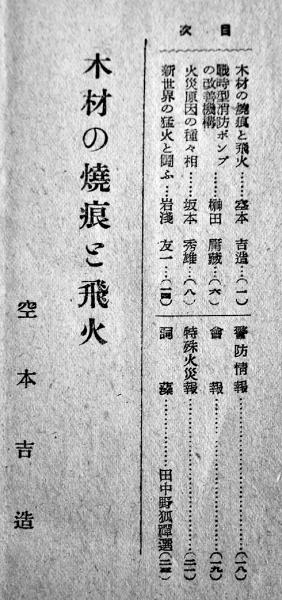 目次
木材の燒痕と飛火……空本吉造…(一)
戰時型消防ポンプ
の改善機構……榊田
火災原因の種々相……坂本秀雄…(八)
新世界の猛火と鬪ふ…岩淺友一…
警防情報……(一八)
會報……(一九)
特殊火災報……
詞藻……田中野狐禪選
木材の燒痕と飛火
空本吉造